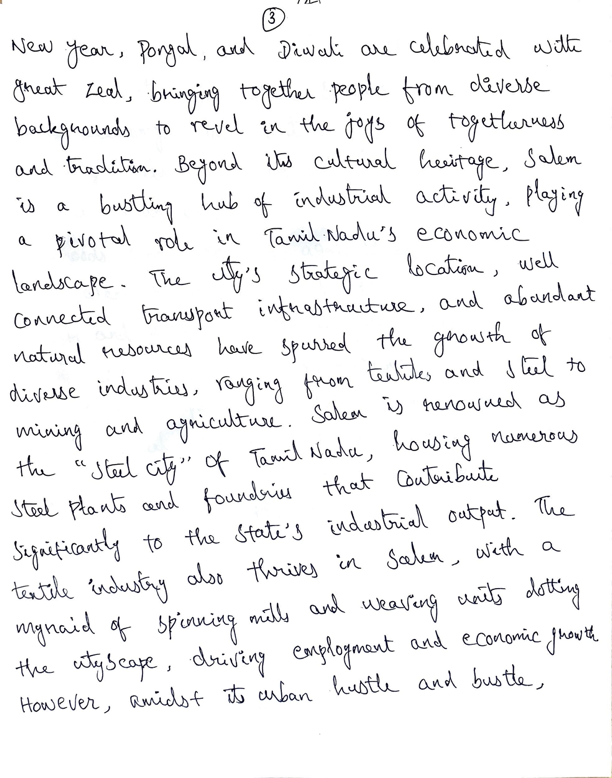 3
New Year, Pongal, and Diwali are celebrated with
great zeal, bringing together people from diverse
backgrounds to revel in the joys of togetherness
and tradition. Beyond its cultural heritage, Salem
is a bustling hub of industrial activity, playing
a pivotal role in Tamil Nadu's economic
landscape. The city's strategic location, well
connected transport infrastructure, and abandant
natural resources have spurred the growth of
diverse industries, ranging from textiles and Steel to
mining and agriculture. Salem is renowned as
the "Steel city" of Tamil Nadu, housing numerous
Steel Plants and foundries that Contribute
Significantly to the State's industrial output. The
textile industry also thrives in Salem, with a
mynaid of spinning mills and weaving units dotting
the cityscape, driving employment and economic growth
However, amidst its urban hustle and bustle,